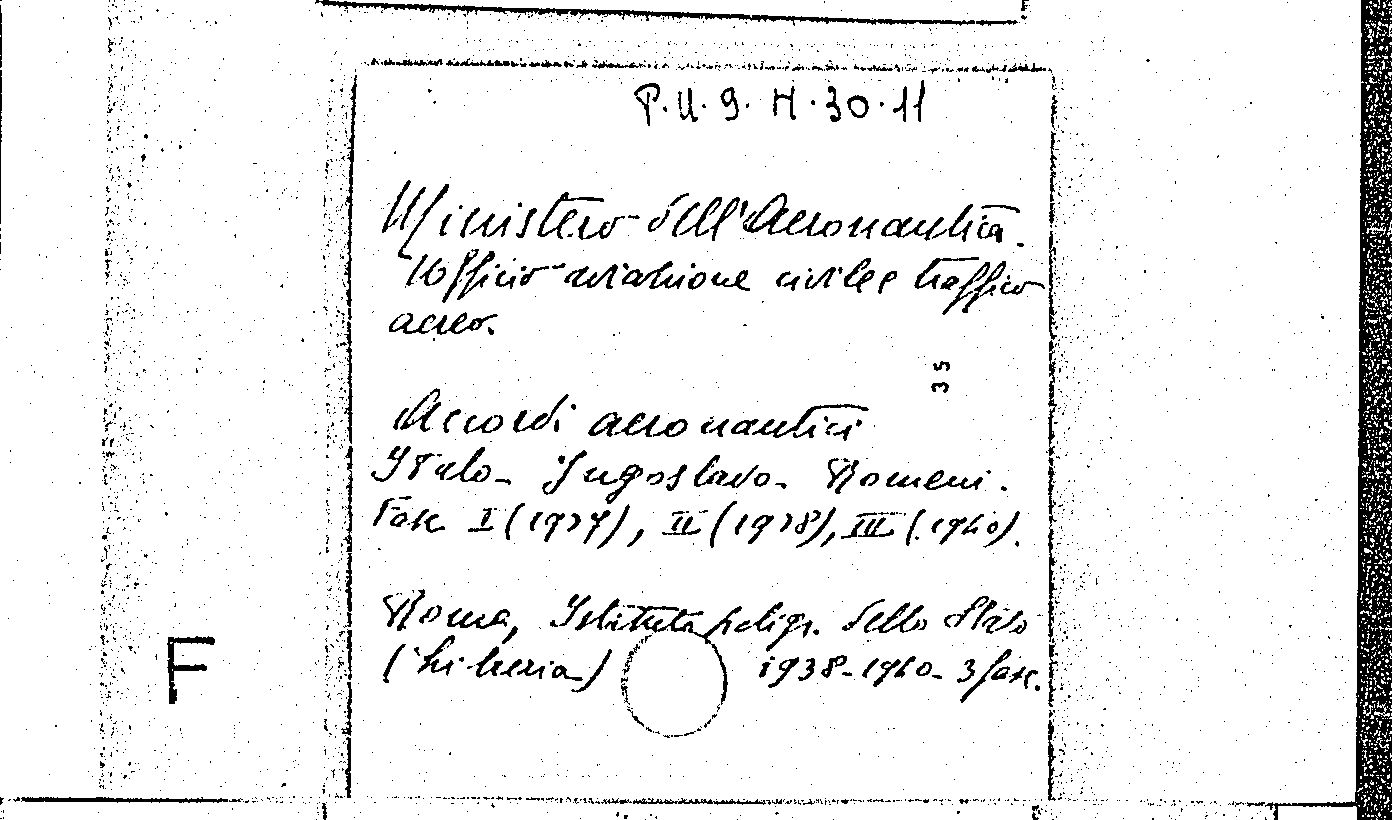 P.U.9.H.30.11
Ministero dell'Aeronautica.
Ufficio aviazione civile e traffico
aereo.
35
Accordi aeronautici
Italo-Jugoslavo-Romeni.
Fasc I (1937), II (1938), III (1940).
Roma, Istituto poligr. dello Stato
(Libreria) 1938-1940- 3 fasc.
F